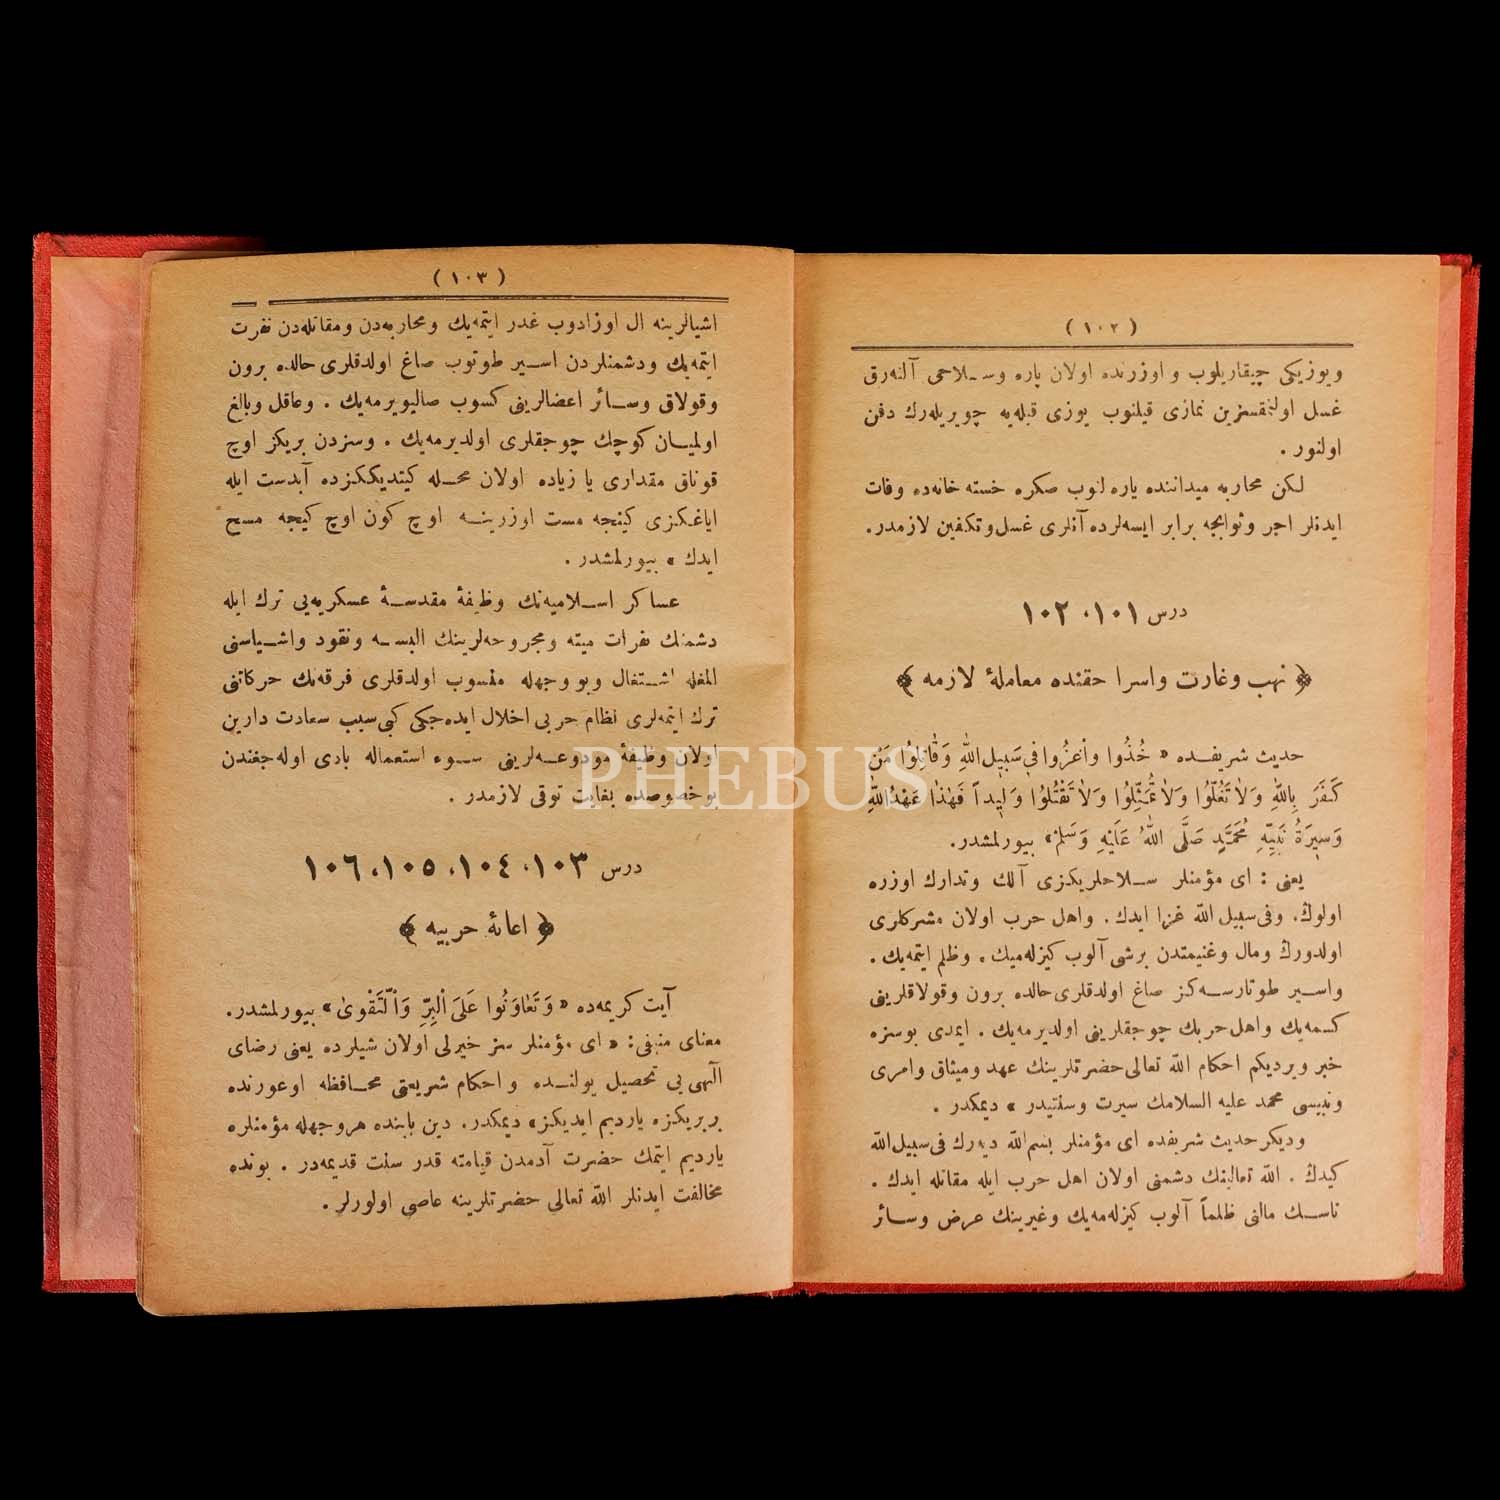 ( ١٠٢ )
ويوزيكى چيقاريلوب و اوزرنده اولان پاره وسلاحى آلنه‌رق
غسل اولنمقسزين نمازى قيلنوب يوزى قبله‌يه چويريله‌رك دفن
اولنور .
لكن محاربه ميداننده ياره‌لنوب صكره خسته خانه‌ده وفات
ايدنلر اجر وثوابجه برابر ايسه‌لرده آنلرى غسل وتكفين لازمدر.
درس ١٠١، ١٠٢
﴿ نهب وغارت واسرا حقنده معاملهٔ لازمه ﴾
حديث شريفده « خُذُوا وَاغزُوا فى سَبِيلِ اللهِ وَقَاتِلُوا مَنْ
كَفَرَ بِاللهِ وَلاَ تَغُلّوُا وَلاَ تُمَثِّلُوا وَلاَ تَقْتُلُوا وَلِيداً فَهٰذَا عَهْدُ اللهِ
وَسِيرَةُ نَبِيِّهِ مُحَمَّدٍ صَلَّى اللهُ عَلَيْهِ وَسَلَّمْ » بيورلمشدر.
يعنى : اى مؤمنلر سلاحلريكزى آلك وتدارك اوزره
اولوڭ. وفى سبيل الله غزا ايدك. واهل حرب اولان مشركلرى
اولدورڭ ومال وغنيمتدن برشى آلوب كيزله‌ميك . وظلم ايتمه‌يك .
واسير طوتارسه‌كز صاغ اولدقلرى حالده برون وقولاقلرينى
كسمه‌يك واهل حربك چوجقلرينى اولديرمه‌يك . ايمدى بوسزه
خبر ويرديكم احكام الله تعالى حضرتلرينك عهد وميثاق وامرى
ونبيسى محمد عليه السلامك سيرت وسنتيدر » ديمكدر .
وديكر حديث شريفده اى مؤمنلر بسم الله ديه‌رك فى سبيل الله
كيدڭ . الله تعالينك دشمنى اولان اهل حرب ايله مقاتله ايدك .
ناسك مالنى ظلماً آلوب كيزله‌مه‌يك وغيرينك عرض وسائر
( ١٠٣ )
اشيالرينه ال اوزادوب غدر ايتمه‌يك ومحاربه‌دن ومقاتله‌دن نفرت
ايتمه‌يك ودشمنلردن اسير طوتوب صاغ اولدقلرى حالده برون
وقولاق وسائر اعضالرينى كسوب صاليويرمه‌يك . وعاقل وبالغ
اولميان كوچك چوجقلرى اولديرمه‌يك . وسزدن بريكز اوچ
قوناق مقدارى يا زياده اولان محله كيتديككزده آبدست ايله
اياغكزى كينجه مست اوزرينه اوچ كون اوچ كيجه مسح
ايدك » بيورلمشدر .
عساكر اسلاميه‌نك وظيفهٔ مقدسهٔ عسكريه‌يى ترك ايله
دشمنك نفرات ميته ومجروحه‌لرينك البسه ونقود واشياسنى
المغله اشتغال وبو وجهله منسوب اولدقلرى فرقه‌نك حركاتنى
ترك ايتمه‌لرى نظام حربى اخلال ايده‌جكى كبى سبب سعادت دارين
اولان وظيفهٔ مودوعه‌لرينى سوء استعماله بادى اوله‌جغندن
بو خصوصده بغايت توقى لازمدر .
درس ١٠٣، ١٠٤، ١٠٥، ١٠٦
﴿ اعانهٔ حربيه ﴾
آيت كريمه‌ده « وَتَعَاوَنُوا عَلَى الْبِرِّ وَالتَّقْوىٰ » بيورلمشدر.
معناى منيفى : « اى مؤمنلر سز خيرلى اولان شيلرده يعنى رضاى
الهى‌يى تحصيل يولنده و احكام شريعتى محافظه اوغورنده
بربريكزه يارديم ايديكز » ديمكدر. دين بابنده هر وجهله مؤمنلره
يارديم ايتمك حضرت آدمدن قيامته قدر سنت قديمه‌در . بونده
مخالفت ايدنلر الله تعالى حضرتلرينه عاصى اولورلر .
PHEBUS